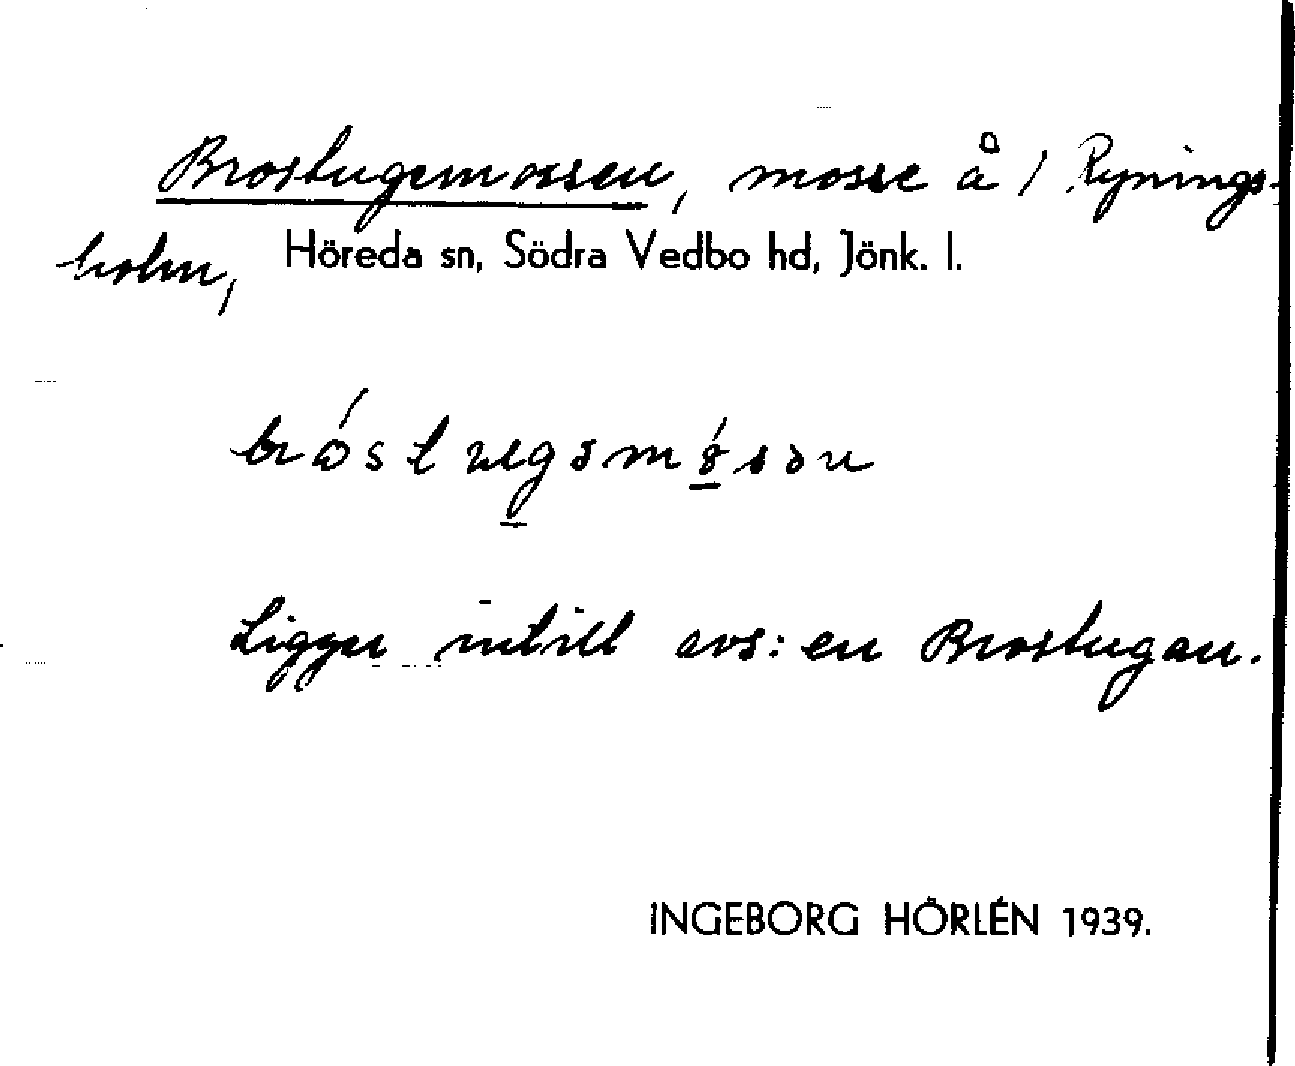 Brostugemossen, mosse å / Rynings-
holm, Höreda sn, Södra Vedbo hd, Jönk. l.
Ligger intill avs: en Brostugan.
INGEBORG HÖRLÉN 1939.